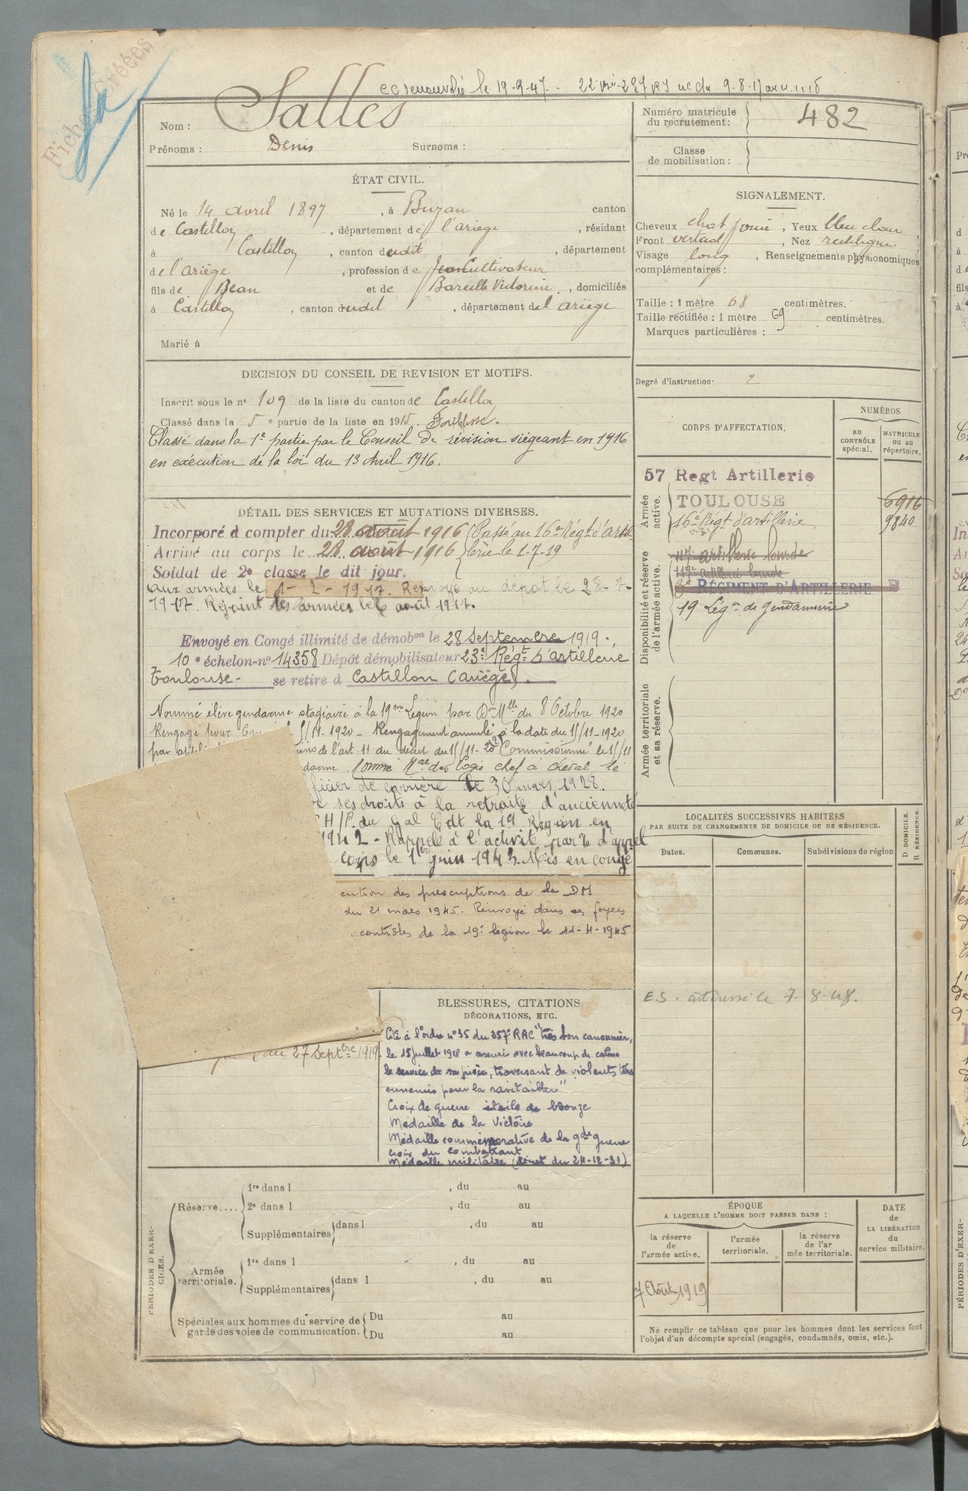 Salles
ce renouvelée le 19-9-47.
Nom :
Prénoms : Denis Surnoms :
Numéro matricule du recrutement : 482
Classe de mobilisation :
ÉTAT CIVIL.
Né le 14 avril 1897, à Buzan canton
de Castillon, département de l'ariège, résidant
à Castillon, canton dudit, département
de l'ariège, profession de Cultivateur
fils de Jean et de Bareille Victorine, domiciliés
à Castillon, canton dudit, département de l'ariège
Marié à
SIGNALEMENT.
Cheveux chat foncé, Yeux bleu clair
Front vertical, Nez rectiligne
Visage long, Renseignements physionomiques
complémentaires :
Taille : 1 mètre 68 centimètres.
Taille rectifiée : 1 mètre 69 centimètres.
Marques particulières :
Degré d'instruction : 2
DECISION DU CONSEIL DE REVISION ET MOTIFS.
Inscrit sous le n° 109 de la liste du canton de Castillon
Classé dans la 5e partie de la liste en 1915. Faiblesse.
Classé dans la 1e partie par le Conseil de révision siégeant en 1916
en exécution de la loi du 13 Avril 1916.
CORPS D'AFFECTATION.
NUMÉROS
AU CONTRÔLE spécial.
MATRICULE OU AU répertoire.
Armée active.
57 Regt Artillerie
TOULOUSE 6916
16e Régt d'artillerie 9840
Disponibilité et réserve de l'armée active.
117e artillerie lourde
117e artillerie lourde
RÉGIMENT D'ARTILLERIE
19 Légn de gendarmerie
Armée territoriale et sa réserve.
DÉTAIL DES SERVICES ET MUTATIONS DIVERSES.
Incorporé à compter du 28 août 1916 (Passé au 16e Régt d'Artil
Arrivé au corps le 28 août 1916 lerie le 1-7-19
Soldat de 2e classe le dit jour.
aux armées le 1-2-1917. Renvoyé au dépôt le 28-7-
1917. Rejoint les armées le 6 août 1917.
Envoyé en Congé illimité de démobon le 28 Septembre 1919.
10e échelon-n° 14358 Dépôt démobilisateur 23e Régt d'artillerie
Toulouse- se retire à Castillon (Ariège).
Nommé élève gendarme stagiaire à la 19me Légion par Dn Mlle du 8 Octobre 1920
Rengagé pour 1920 - Rengagement annulé à la date du 5/11-1920
de l'art 11 du Commissionné le 5/11
darme. Nommé Mal des Logis chef à cheval le
ficier de carrière le 30 mars 1928.
ses droits à la retraite d'ancienneté
du Gal Cdt la 19 Région en
1942 - Rappelé à l'activité par o d'appel
corps le 1er juin 1943. Mis en congé
cution des prescriptions de la DM
du 21 mars 1945. Renvoyé dans ses foyers
contrôles de la 19e légion le 11-4-1945
du 27 Septbre 1919
BLESSURES, CITATIONS,
DÉCORATIONS, ETC.
Cité à l'ordre n° 35 du 357e RAC "très bon canonnier,
le 15 juillet 1918 a assuré avec beaucoup de calme
le service de sa pièce, traversant de violents tirs
ennemis pour la ravitailler"
Croix de guerre étoile de bronze
Médaille de la Victoire
Médaille commémorative de la gde guerre
Croix du combattant
Médaille militaire (décret du 24-12-31)
LOCALITÉS SUCCESSIVES HABITÉES
PAR SUITE DE CHANGEMENTS DE DOMICILE OU DE RÉSIDENCE.
Dates.
Communes.
Subdivisions de région
D DOMICILE, R RÉSIDENCE.
E.S. adressé le 7-8-48.
PÉRIODES D'EXERCICES.
Réserve....
1re dans l , du au
2e dans l , du au
Supplémentaires dans l , du au
Armée territoriale.
1re dans l , du au
Supplémentaires dans l , du au
Spéciales aux hommes du service de garde des voies de communication.
Du au
Du au
ÉPOQUE
A LAQUELLE L'HOMME DOIT PASSER DANS :
la réserve de l'armée active.
l'armée territoriale.
la réserve de l'armée territoriale.
DATE de LA LIBÉRATION du service militaire.
1919
Ne remplir ce tableau que pour les hommes dont les services font
l'objet d'un décompte spécial (engagés, condamnés, omis, etc.).